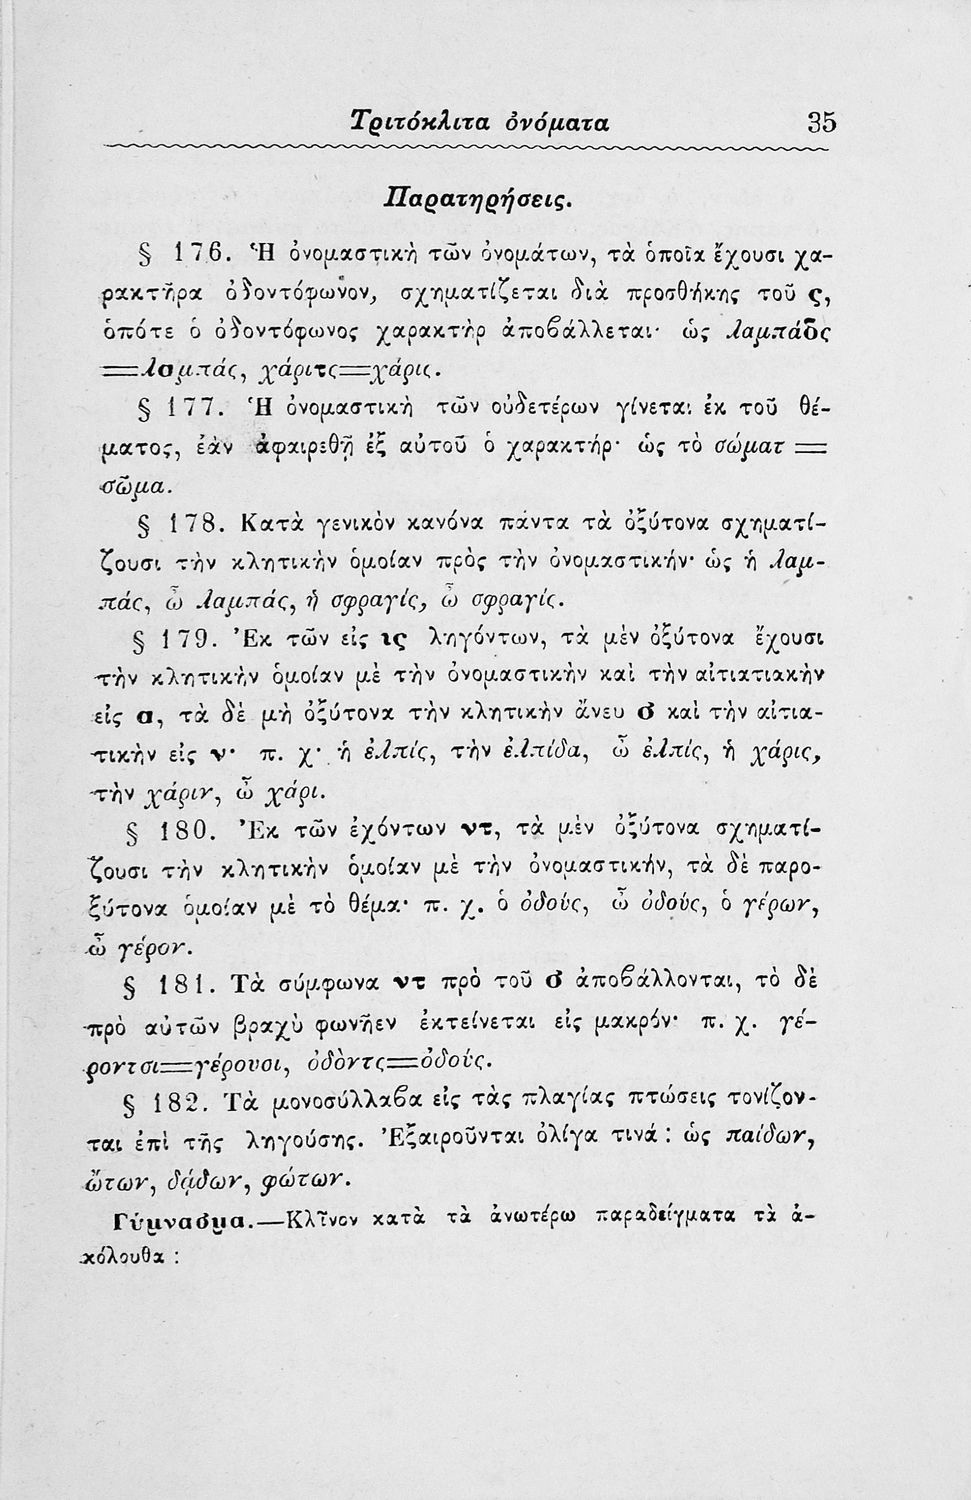 Τριτόκλιτα ὀνόματα 35
Παρατηρήσεις.
§ 176. Ἡ ὀνομαστικὴ τῶν ὀνομάτων, τὰ ὁποῖα ἔχουσι χα-
ρακτῆρα ὀδοντόφωνον, σχηματίζεται διὰ προσθήκης τοῦ ς,
ὁπότε ὁ ὀδοντόφωνος χαρακτὴρ ἀποβάλλεται· ὡς λαμπάδς
=λαμπάς, χάριτς=χάρις.
§ 177. Ἡ ὀνομαστικὴ τῶν οὐδετέρων γίνεται ἐκ τοῦ θέ-
ματος, ἐὰν ἀφαιρεθῇ ἐξ αὐτοῦ ὁ χαρακτήρ· ὡς τὸ σώματ =
σῶμα.
§ 178. Κατὰ γενικὸν κανόνα πάντα τὰ ὀξύτονα σχηματί-
ζουσι τὴν κλητικὴν ὁμοίαν πρὸς τὴν ὀνομαστικήν· ὡς ἡ λαμ-
πάς, ὦ λαμπάς, ἡ σφραγίς, ὦ σφραγίς.
§ 179. Ἐκ τῶν εἰς ις ληγόντων, τὰ μὲν ὀξύτονα ἔχουσι
τὴν κλητικὴν ὁμοίαν μὲ τὴν ὀνομαστικὴν καὶ τὴν αἰτιατιακὴν
εἰς α, τὰ δὲ μὴ ὀξύτονα τὴν κλητικὴν ἄνευ σ καὶ τὴν αἰτια-
τικὴν εἰς ν· π. χ· ἡ ἐλπίς, τὴν ἐλπίδα, ὦ ἐλπίς, ἡ χάρις,
τὴν χάριν, ὦ χάρι.
§ 180. Ἐκ τῶν ἐχόντων ντ, τὰ μὲν ὀξύτονα σχηματί-
ζουσι τὴν κλητικὴν ὁμοίαν μὲ τὴν ὀνομαστικήν, τὰ δὲ παρο-
ξύτονα ὁμοίαν μὲ τὸ θέμα· π. χ. ὁ ὀδούς, ὦ ὀδούς, ὁ γέρων,
ὦ γέρον.
§ 181. Τὰ σύμφωνα ντ πρὸ τοῦ σ ἀποβάλλονται, τὸ δὲ
πρὸ αὐτῶν βραχὺ φωνῆεν ἐκτείνεται εἰς μακρόν· π. χ. γέ-
ροντσι=γέρουσι, ὀδὸντς=ὀδούς.
§ 182. Τὰ μονοσύλλαβα εἰς τὰς πλαγίας πτώσεις τονίζον-
ται ἐπὶ τῆς ληγούσης. Ἐξαιροῦνται ὀλίγα τινά : ὡς παίδων,
ὤτων, δᾴδων, φώτων.
Γύμνασμα.—Κλῖνον κατὰ τὰ ἀνωτέρω παραδείγματα τὰ ἀ-
κόλουθα :